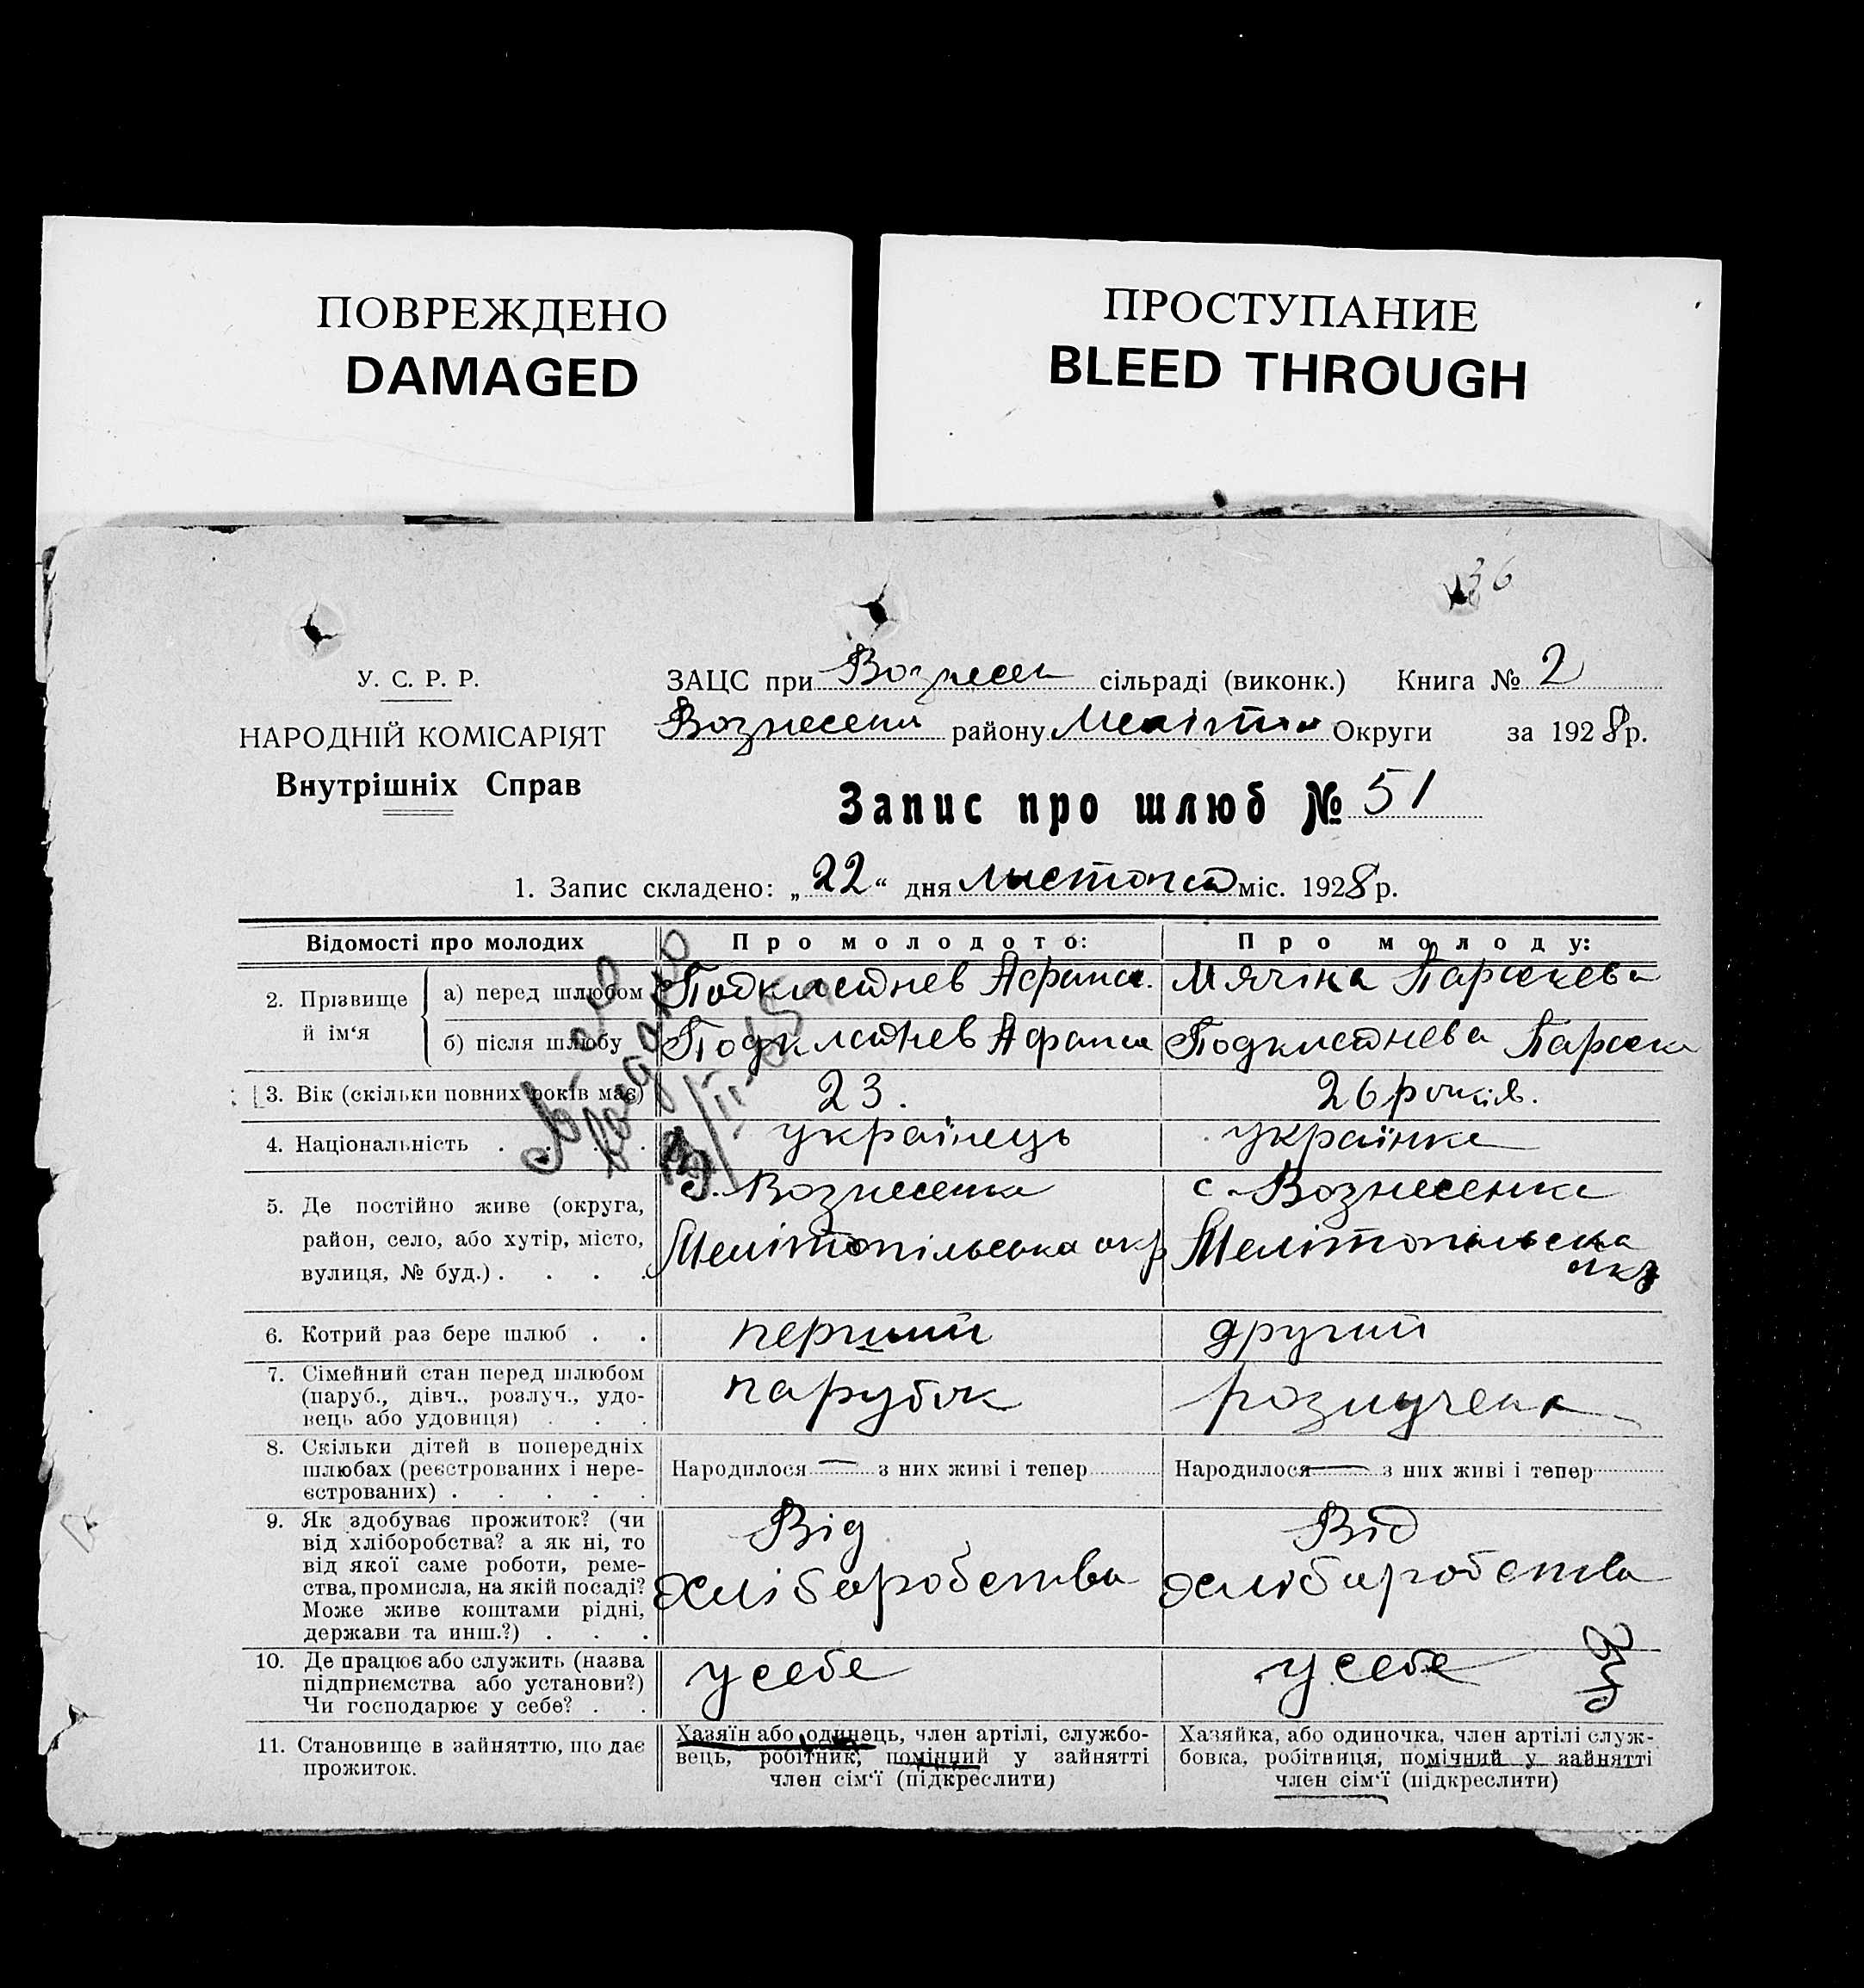 ПОВРЕЖДЕНО
DAMAGED
ПРОСТУПАНИЕ
BLEED THROUGH
36
У. С. Р. Р.
НАРОДНІЙ КОМІСАРІЯТ
Внутрішніх Справ
ЗАЦС при Вознесен сільраді (виконк.) Книга № 2
Вознесенк району Мелітоп Округи за 1928 р.
Запис про шлюб № 51
1. Запис складено: „22“ дня листопад міс. 1928 р.
Відомості про молодих
Про молодого:
Про молоду:
2. Прізвище й ім‘я
а) перед шлюбом
Афанас.
Мячіна Параскева
б) після шлюбу
Афанас
Параск
3. Вік (скільки повних років має)
23.
26 років.
4. Національність . . . .
українець
українка
5. Де постійно живе (округа,
район, село, або хутір, місто,
вулиця, № буд.) . . . .
с. Вознесенка
Мелітопільська окр
с. Вознесенка
Мелітопільська
окр
6. Котрий раз бере шлюб . .
перший
другий
7. Сімейний стан перед шлюбом
(паруб., дівч., розлуч., удо-
вець або удовиця) . . .
парубок
розлучена
8. Скільки дітей в попередніх
шлюбах (реєстрованих і нере-
єстрованих) . . . . .
Народилося — з них живі і тепер
Народилося — з них живі і тепер
9. Як здобуває прожиток? (чи
від хліборобства? а як ні, то
від якої саме роботи, реме-
ства, промисла, на якій посаді?
Може живе коштами рідні,
держави та инш.?) . . .
Від
хліборобства
Від
хліборобства
10. Де працює або служить (назва
підприємства або установи?)
Чи господарює у себе? . .
у себе
у себе
11. Становище в зайняттю, що дає
прожиток.
Хазяїн або одинець, член артілі, службо-
вець, робітник, помічний у зайнятті
член сім‘ї (підкреслити)
Хазяйка, або одиночка, член артілі служ-
бовка, робітниця, помічний у зайнятті
член сім‘ї (підкреслити)